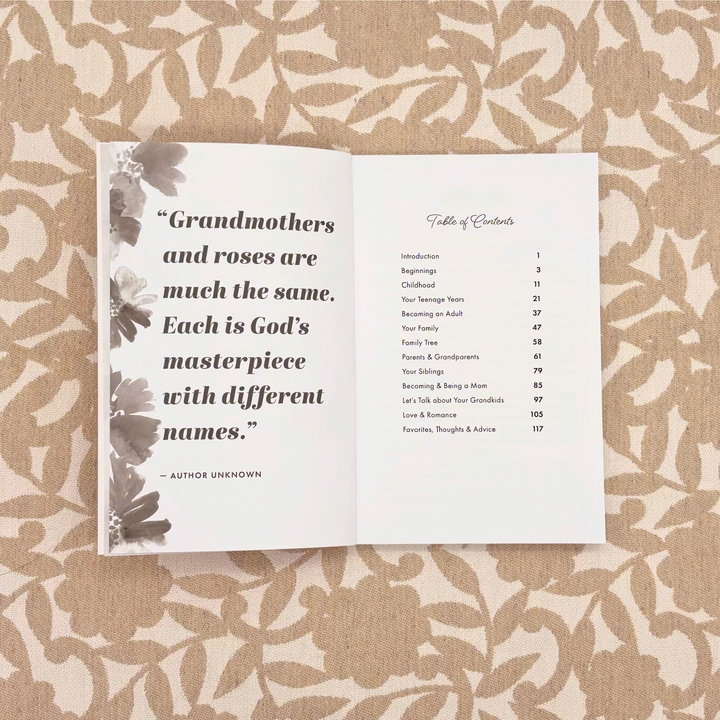 “Grandmothers
and roses are
much the same.
Each is God’s
masterpiece
with different
names.”
— AUTHOR UNKNOWN
Table of Contents
Introduction 1
Beginnings 3
Childhood 11
Your Teenage Years 21
Becoming an Adult 37
Your Family 47
Family Tree 58
Parents & Grandparents 61
Your Siblings 79
Becoming & Being a Mom 85
Let’s Talk about Your Grandkids 97
Love & Romance 105
Favorites, Thoughts & Advice 117